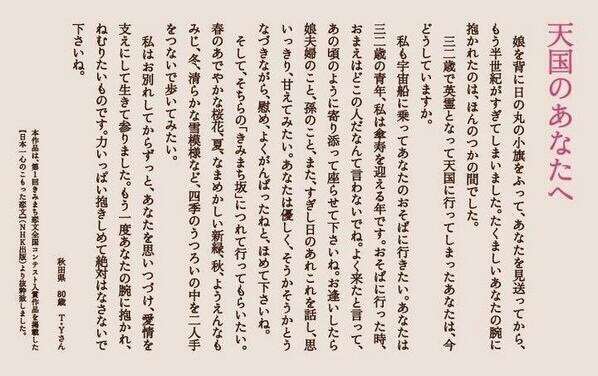 天国のあなたへ
娘を背に日の丸の小旗をふって、あなたを見送ってから、
もう半世紀がすぎてしまいました。たくましいあなたの腕に
抱かれたのは、ほんのつかの間でした。
三二歳で英霊となって天国に行ってしまったあなたは、今
どうしていますか。
私も宇宙船に乗ってあなたのおそばに行きたい。あなたは
三二歳の青年、私は傘寿を迎える年です。おそばに行った時、
おまえはどこの人だなんて言わないでね。よく来たと言って、
あの頃のように寄り添って座らせて下さいね。お逢いしたら
娘夫婦のこと、孫のこと、また、すぎし日のあれこれを話し、思
いっきり、甘えてみたい。あなたは優しく、そうかそうかとう
なづきながら、慰め、よくがんばったねと、ほめて下さいね。
そして、そちらの「きみまち坂」につれて行ってもらいたい。
春のあでやかな桜花、夏、なまめかしい新緑、秋、ようえんなも
みじ、冬、清らかな雪模様など、四季のうつろいの中を二人手
をつないで歩いてみたい。
私はお別れしてからずっと、あなたを思いつづけ、愛情を
支えにして生きて参りました。もう一度あなたの腕に抱かれ、
ねむりたいものです。力いっぱい抱きしめて絶対はなさないで
下さいね。
秋田県 80歳 T・Yさん
本作品は、第1回きみまち恋文全国コンテスト入賞作品を掲載した
『日本一心のこもった恋文』(NHK出版)より抜粋致しました。